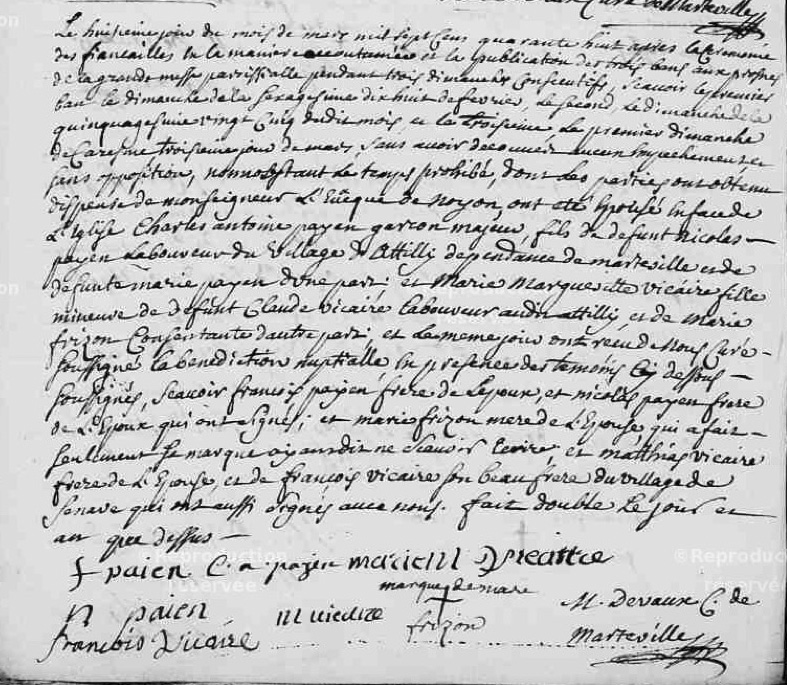 Curé de Marteville
Le huitieme jour du mois de mars mil sept cens quarante huit apres la Ceremonie
des fiancailles en la maniere accoutumée et la publication des trois bans aux prosnes
de la grande messe parrissialle pendant trois dimanches Consecutifs, scavoir le premier
ban le dimanche de la sexagesime dix huit de fevrier, le second, le dimanche de la
quinquagesime vingt cinq dudit mois, et le troisieme le premier dimanche
de Caresme troisieme jour de mars, sans avoir decouvert aucun Empechement, et
sans opposition, nonnobstant le temps prohibé, dont les parties ont obtenu
dispense de monseigneur L'Eveque de Noyon, ont eté Epousé en face de
L'Eglise Charles antoine payen garcon majeur, fils de defunt nicolas
payen Laboureur du village d'Attilly dependance de marteville et de
defunte marie payen d'une part; et Marie Margueritte vicaire fille
mineure de defunt Claude vicaire laboureur audit attilly, et de Marie
frizon Consentante d'autre part; et le meme jour ont recu de Nous Curé
soussigné la benediction nuptialle, En presence des temoins Cy dessous
soussignés, scavoir francois payen frere de L'epoux, et nicolas payen frere
de L'Epoux qui ont signés; et marie frizon mere de L'Epouse qui a fait
seulement sa marque ayant dit ne scavoir Ecrire, et matthias vicaire
frere de L'Epouse, et de francois vicaire son beau frere du village de
Senave qui ont aussi signés avec nous. fait double le jour et
an que dessus
f paien C. a. payen marie m vicaire
marque de marie
n paien m vicaire frizon M. Devaux C. de
francois Vicaire Marteville
© Reproduction réservée